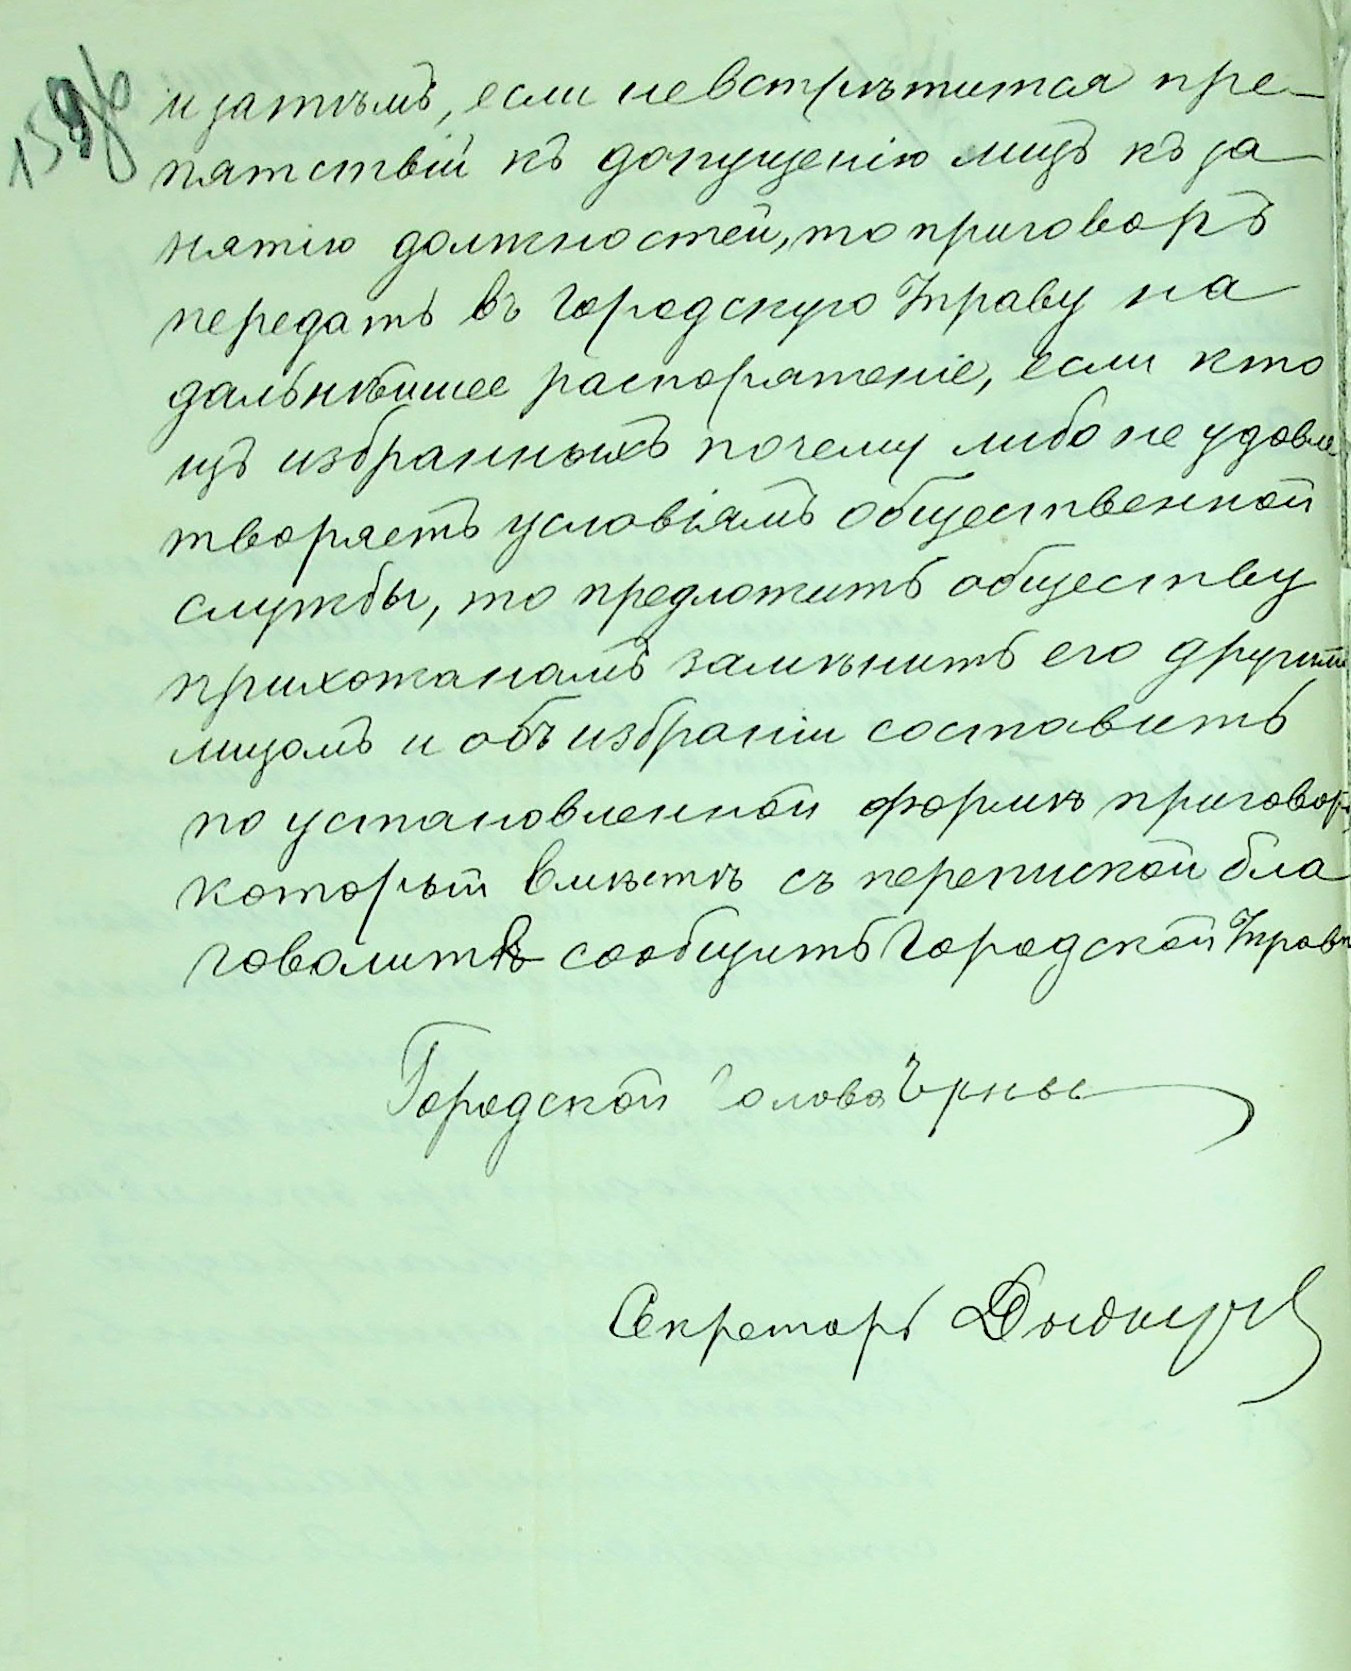 и затѣмъ, если невстрѣтится пре-
пятствій къ допущенію лицъ къ за
нятію должностей, то приговоръ
передать въ Городскую Управу на
дальнѣйшее распоряженіе, если кто
изъ избранныхъ почему либо не удовле
творяетъ условіямъ общественной
службы, то предложить обществу
прихожанамъ замѣнить его другимъ
лицомъ и объ избраніи составить
по установленной формѣ приговоръ,
который вмѣстѣ съ перепиской бла
говолить сообщить Городской Управѣ
Городской Голова
Секретарь